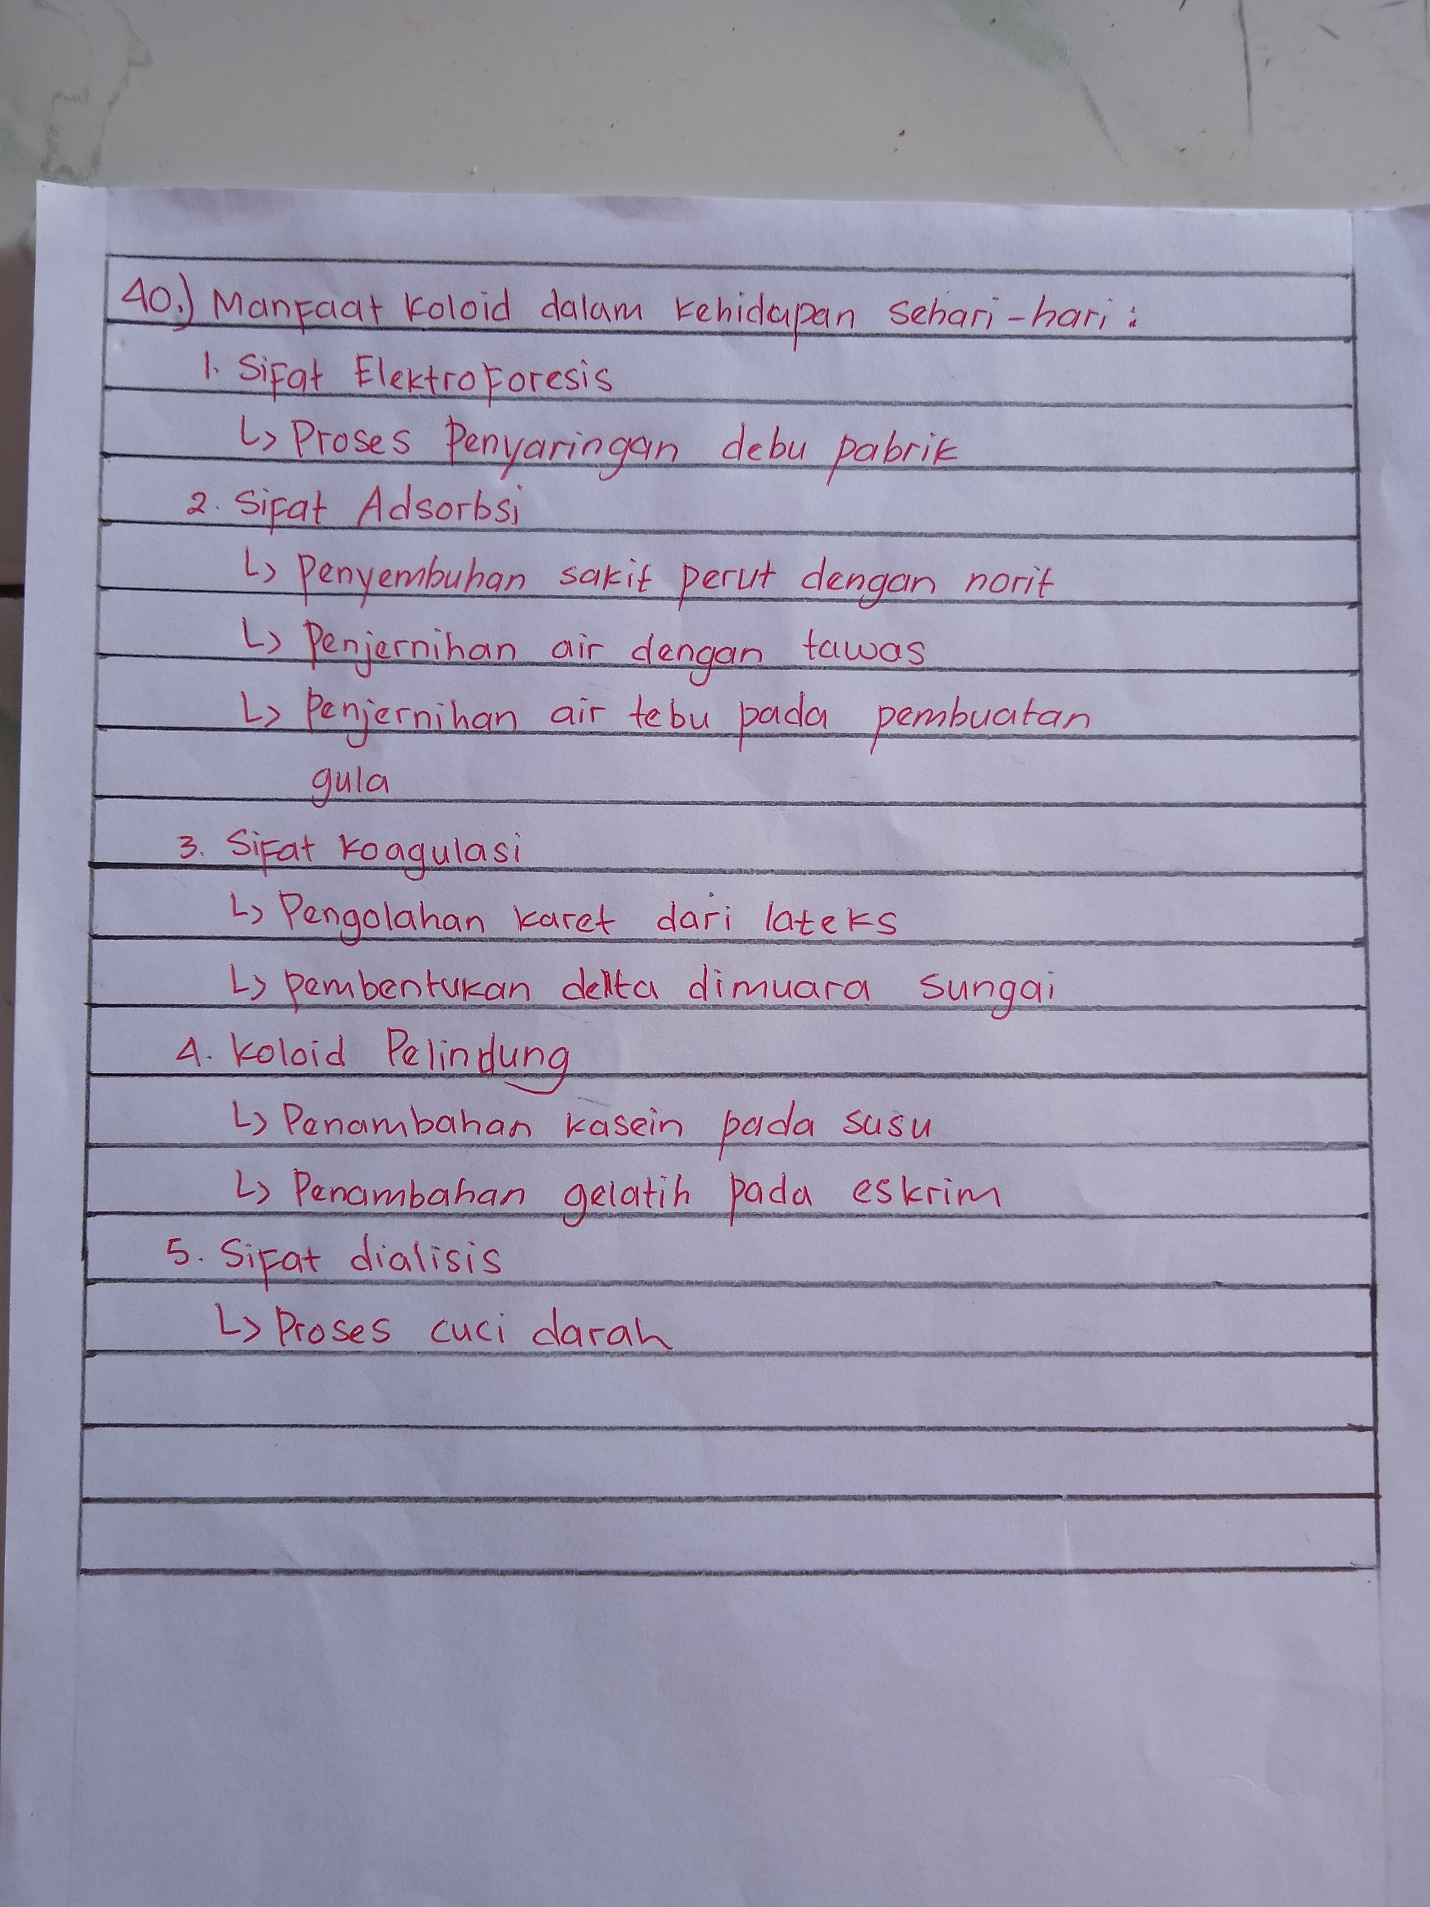 40.) Manfaat koloid dalam kehidupan sehari-hari :
1. Sifat Elektroforesis
↳ Proses Penyaringan debu pabrik
2. Sifat Adsorbsi
↳ Penyembuhan sakit perut dengan norit
↳ Penjernihan air dengan tawas
↳ Penjernihan air tebu pada pembuatan
gula
3. Sifat koagulasi
↳ Pengolahan karet dari lateks
↳ Pembentukan delta dimuara sungai
4. Koloid Pelindung
↳ Penambahan kasein pada susu
↳ Penambahan gelatih pada eskrim
5. Sifat dialisis
↳ Proses cuci darah